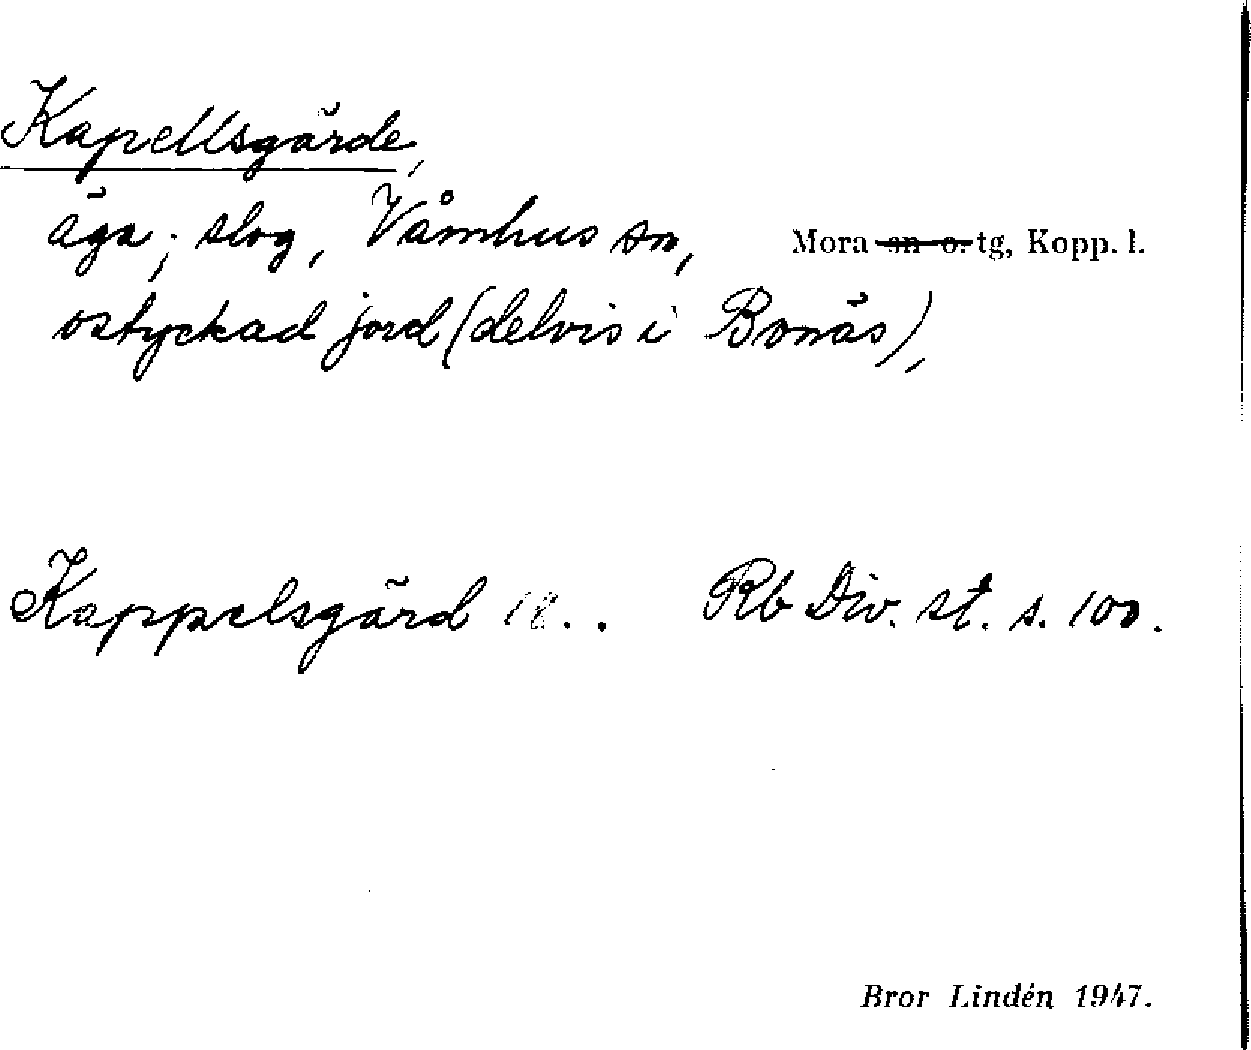 Kapellsgärde,
äga; slog, Våmhus sn, Mora sn o. tg, Kopp. l.
ostyckad jord (delvis i Bonäs),
Kappelsgärd 18.. Rb Div. st. s. 100.
Bror Lindén 1947.